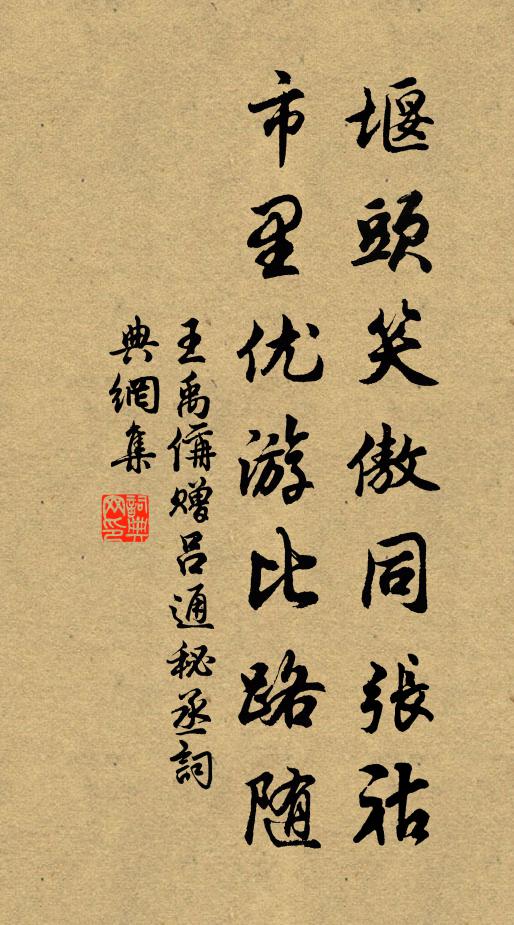 堰頭笑傲同張祜
市里优游比路随
王禹偁贈呂通秘丞詞
典網集
詞典网印